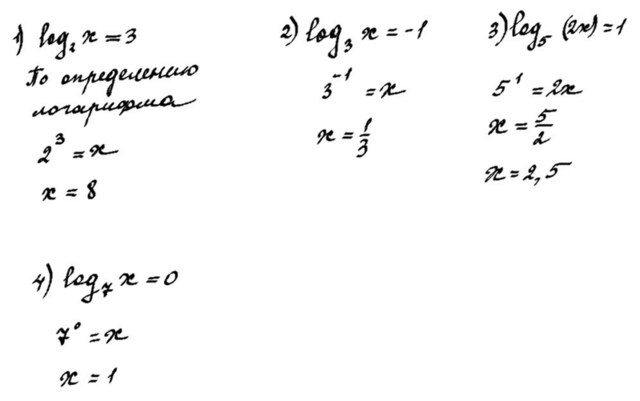 1) log₂ x = 3
По определению
логарифма
2³ = x
x = 8
2) log₃ x = -1
3⁻¹ = x
x = 1/3
3) log₅ (2x) = 1
5¹ = 2x
x = 5/2
x = 2,5
4) log₇ x = 0
7⁰ = x
x = 1